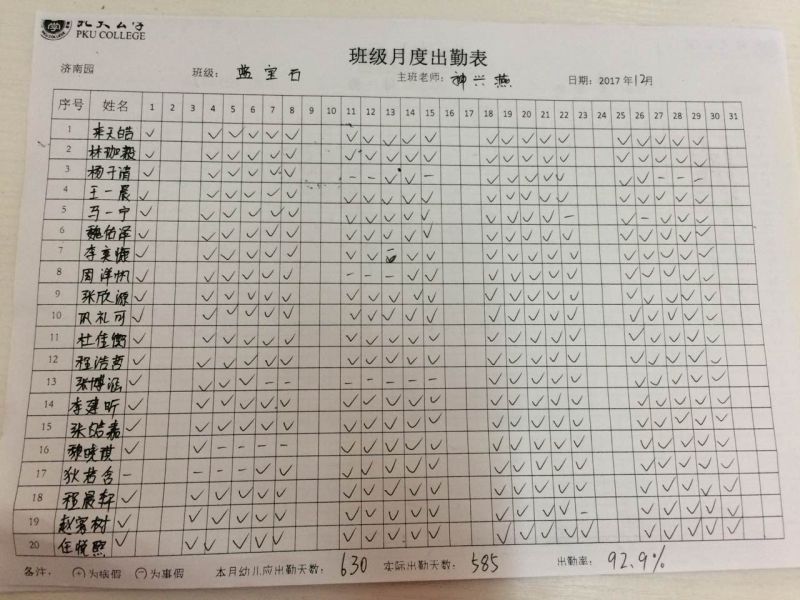 PKU COLLEGE
班级月度出勤表
济南园 班级： 蓝宝石 主班老师： 兴燕 日期：2017年12月
序号 姓名 1 2 3 4 5 6 7 8 9 10 11 12 13 14 15 16 17 18 19 20 21 22 23 24 25 26 27 28 29 30 31
1 李天皓
2 林珈毅
3 杨子清
4 王一晨
5 马一宁
6 魏佑泽
7 李奕
8 周洋帆
9 张欣源
10 巩礼可
11 杜佳衡
12 程浩哲
13 张博涵
14 李建昕
15 张皓嘉
16 魏晓琪
17 狄若含
18 程晨轩
19 赵家树
20 任悦熙
备注： ⊕为病假 ⊖为事假 本月幼儿应出勤天数： 630 实际出勤天数： 585 出勤率： 92.9%